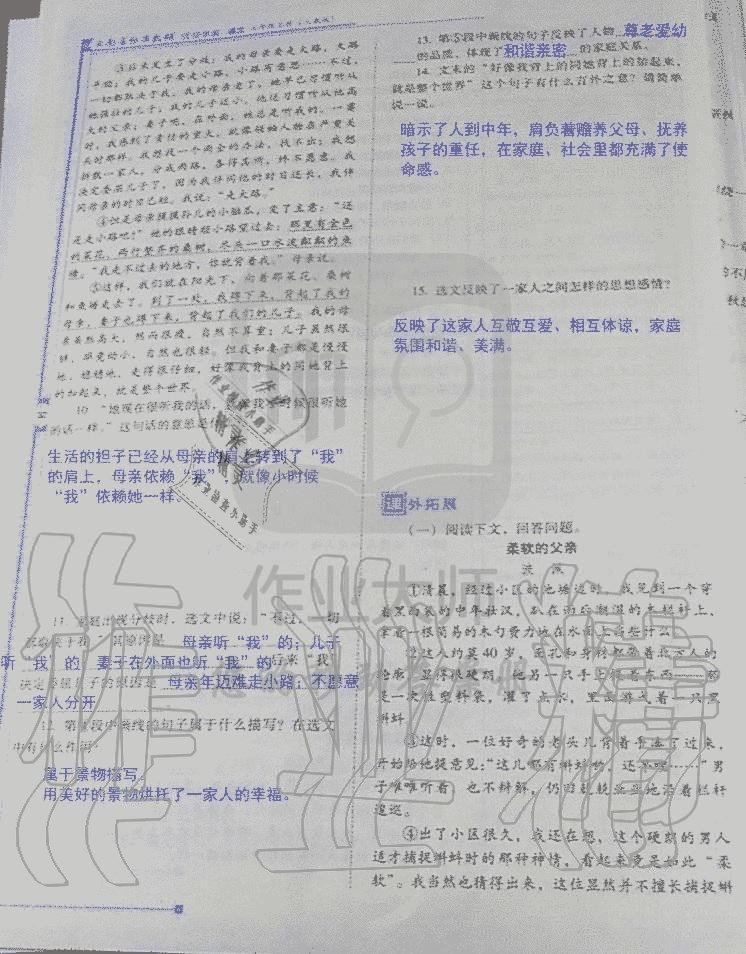 ③后来发生了分歧：我的母亲要走大路，大路
平顺；我的儿子要走小路，小路有意思……不过，
一切都取决于我。我的母亲老了，她早已习惯听从
她强壮的儿子；我的儿子还小，他还习惯听从他高
大的父亲；妻子呢，在外面，她总是听我的。一霎
时，我感到了责任的重大，就像领袖人物在严重关
头时那样。我想找一个两全的办法，找不出；我想
拆散一家人，分成两路，各得其所，终不愿意。我
决定委屈儿子了，因为我伴同他的时日还长，我伴
同母亲的时日已短。我说：“走大路。”
④但是母亲摸摸孙儿的小脑瓜，变了主意：“还
是走小路吧！”她的眼睛顺小路望过去：那里有金色
的菜花，两行整齐的桑树，尽头一口水波粼粼的鱼
塘。“我走不过去的地方，你就背着我。”母亲说。
⑤这样，我们就在阳光下，向着那菜花、桑树
和鱼塘走去了。到了一处，我蹲下来，背起了我的
母亲，妻子也蹲下来，背起了我们的儿子。我的母
亲虽然高大，然而很瘦，自然不算重；儿子虽然很
胖，毕竟幼小，自然也很轻。但我和妻子都是慢慢
地，稳稳地，走得很仔细，好像我背上的同她背上
的加起来，就是整个世界。
10. “她现在很听我的话，就像我小时候很听她
的话一样。”这句话的意思是什
生活的担子已经从母亲的肩上转到了“我”
的肩上，母亲依赖“我”，就像小时候
“我”依赖她一样。
11. 当路出现分歧时，选文中说：“不过，一切
都取决于我”，其原因是 母亲听“我”的；儿子
听“我”的，妻子在外面也听“我”的 后来“我”
决定委屈儿子的原因是 母亲年迈难走小路；不愿意
一家人分开
12. 第④段中画线的句子属于什么描写？在选文
中有什么作用？
属于景物描写。
用美好的景物烘托了一家人的幸福。
13. 第⑤段中画线的句子反映了人物 尊老爱幼
的品质，体现了 和谐亲密 的家庭关系。
14. 文末的“好像我背上的同她背上的加起来，
就是整个世界”这个句子有什么言外之意？请简单
说一说。
暗示了人到中年，肩负着赡养父母、抚养
孩子的重任，在家庭、社会里都充满了使
命感。
15. 选文反映了一家人之间怎样的思想感情？
反映了这家人互敬互爱、相互体谅，家庭
氛围和谐、美满。
课外拓展
（一）阅读下文，回答问题。
柔软的父亲
①清晨，经过小区的池塘边时，我见到一个穿
着黑西装的中年壮汉，趴在雨后潮湿的木栏杆上，
拿着一根简易的木勺费力地在水面上舀些什么。
②这人约莫40岁，面孔和身材都带着北方人的
轮廓，显得很硬朗。他另一只手上提着东西——
是一次性塑料袋，灌了点水，里面游弋着一只黑
蝌蚪。
③这时，一位好奇的老头儿背着手凑了过来，
开始给他提意见：“这儿哪有蝌蚪哟，还不如……”男
子唯唯听着，也不辩解，仍旧兢兢业业地沿着栏杆
逡巡。
④出了小区很久，我还在想，这个硬朗的男人
适才捕捉蝌蚪时的那种神情，看起来竟是如此“柔
软”。我当然也猜得出来，这位显然并不擅长捕捉蝌
作业大师
作业精灵